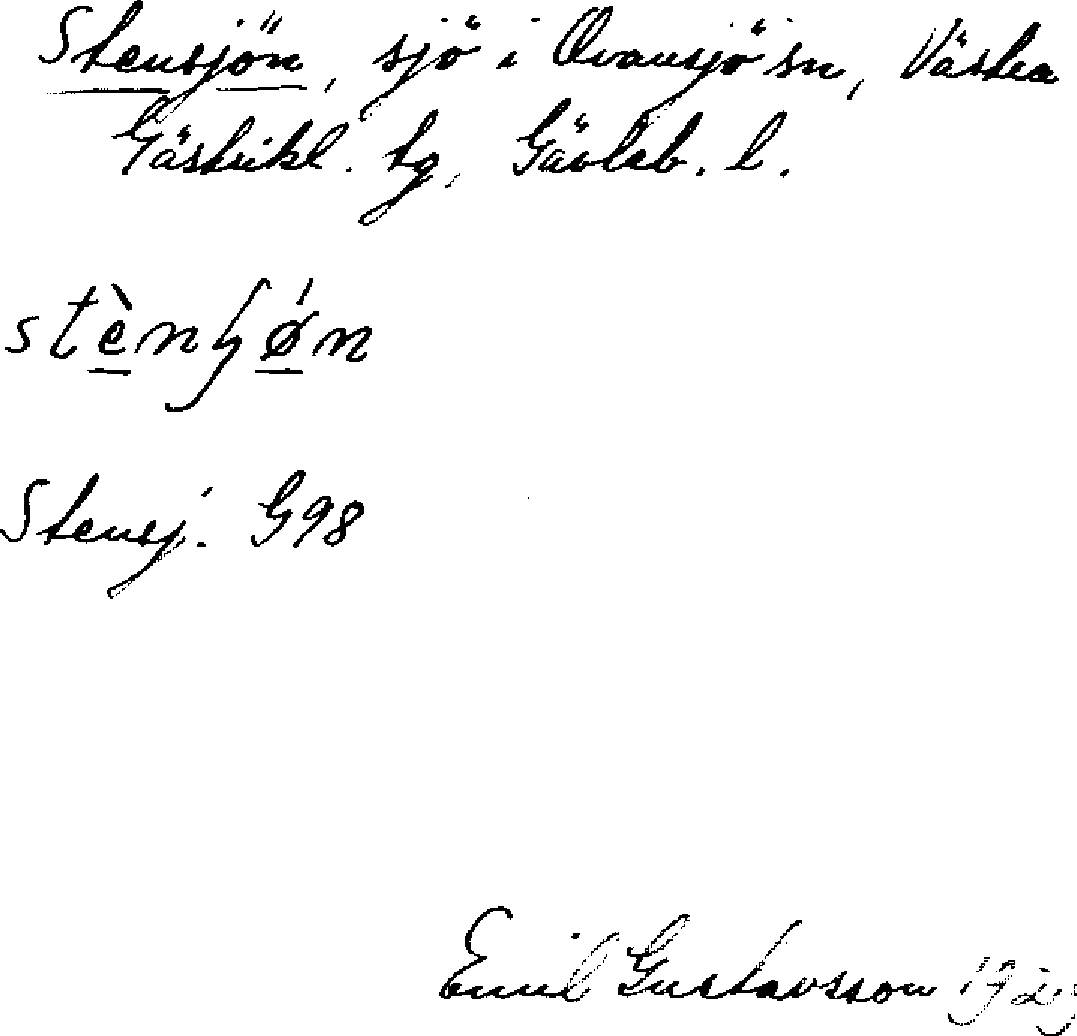 Stensjön, sjö i Ovansjö sn, Västra
Gästrikl. tg, Gävleb. l.
stènʃǿn
Stensj. G98
Emil Gustavsson